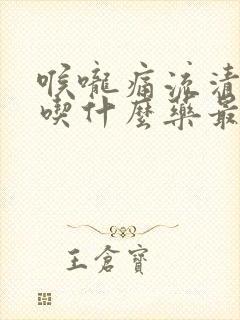 喉嚨痛流清
喫什麼藥最
王倉寶